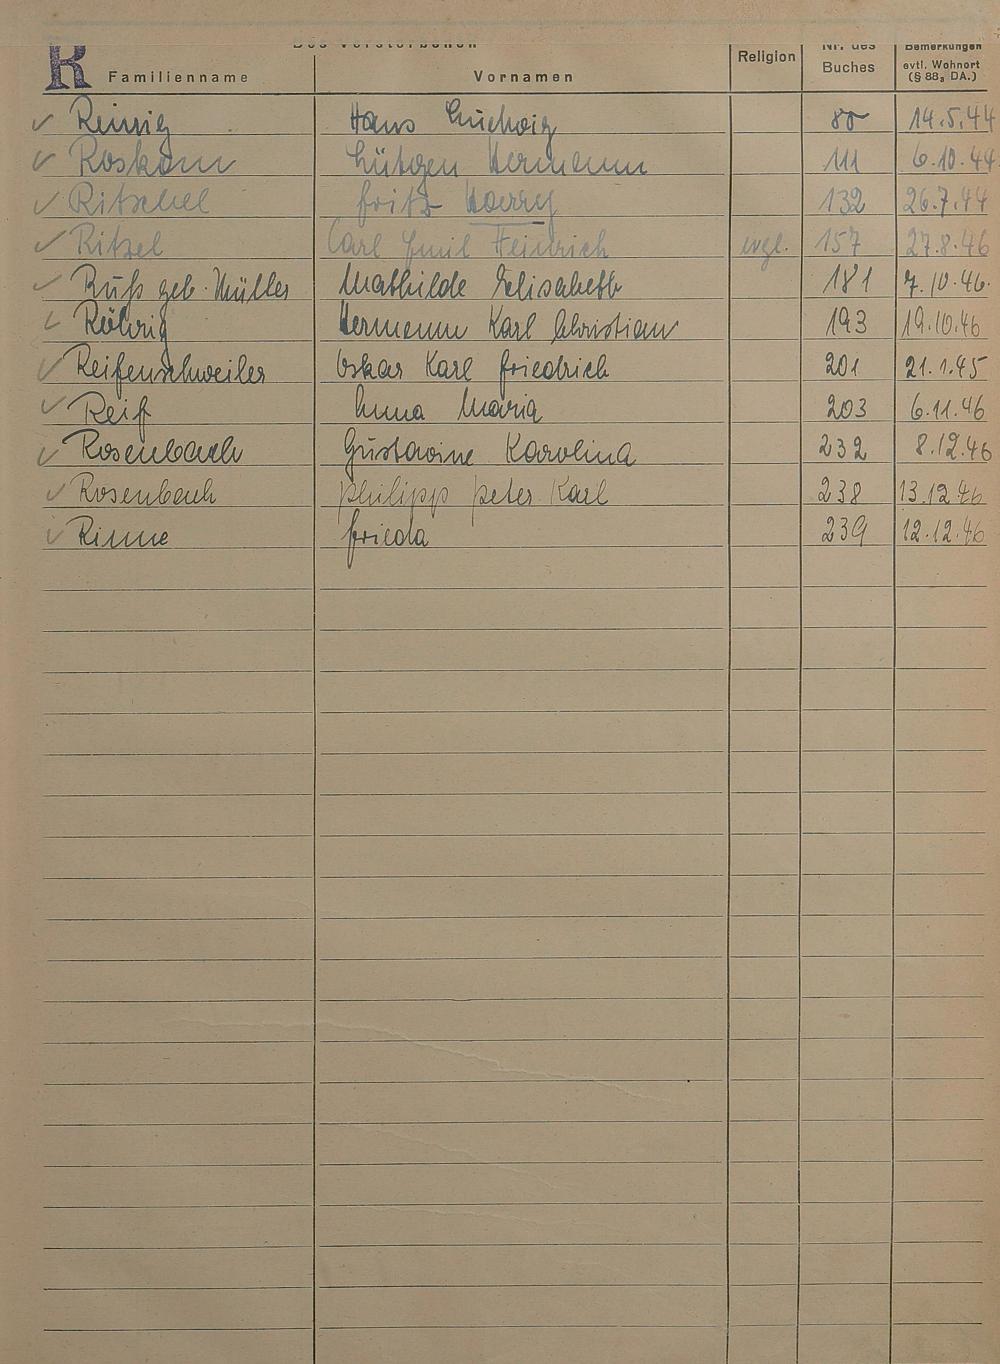 R
Des Verstorbenen
Familienname Vornamen Religion Nr. des Buches Bemerkungen evtl. Wohnort (§ 88, DA.)
✓ Reinig Hans Ludwig 80 14.5.44
✓ Roskam Lütgen Hermann 111 6.10.44
✓ Ritschel Fritz Harry 132 26.7.44
✓ Ritzel Carl Emil Heinrich evgl. 157 27.8.46
✓ Ruß geb. Müller Mathilde Elisabeth 181 7.10.46.
✓ Röhrig Hermann Karl Christian 193 19.10.46
✓ Reifenschweiler Oskar Karl Friedrich 201 21.1.45
✓ Reif Anna Maria 203 6.11.46
✓ Rosenbach Gustavine Karolina 232 8.12.46
✓ Rosenbach Philipp Peter Karl 238 13.12.46
✓ Rinne Frieda 239 12.12.46